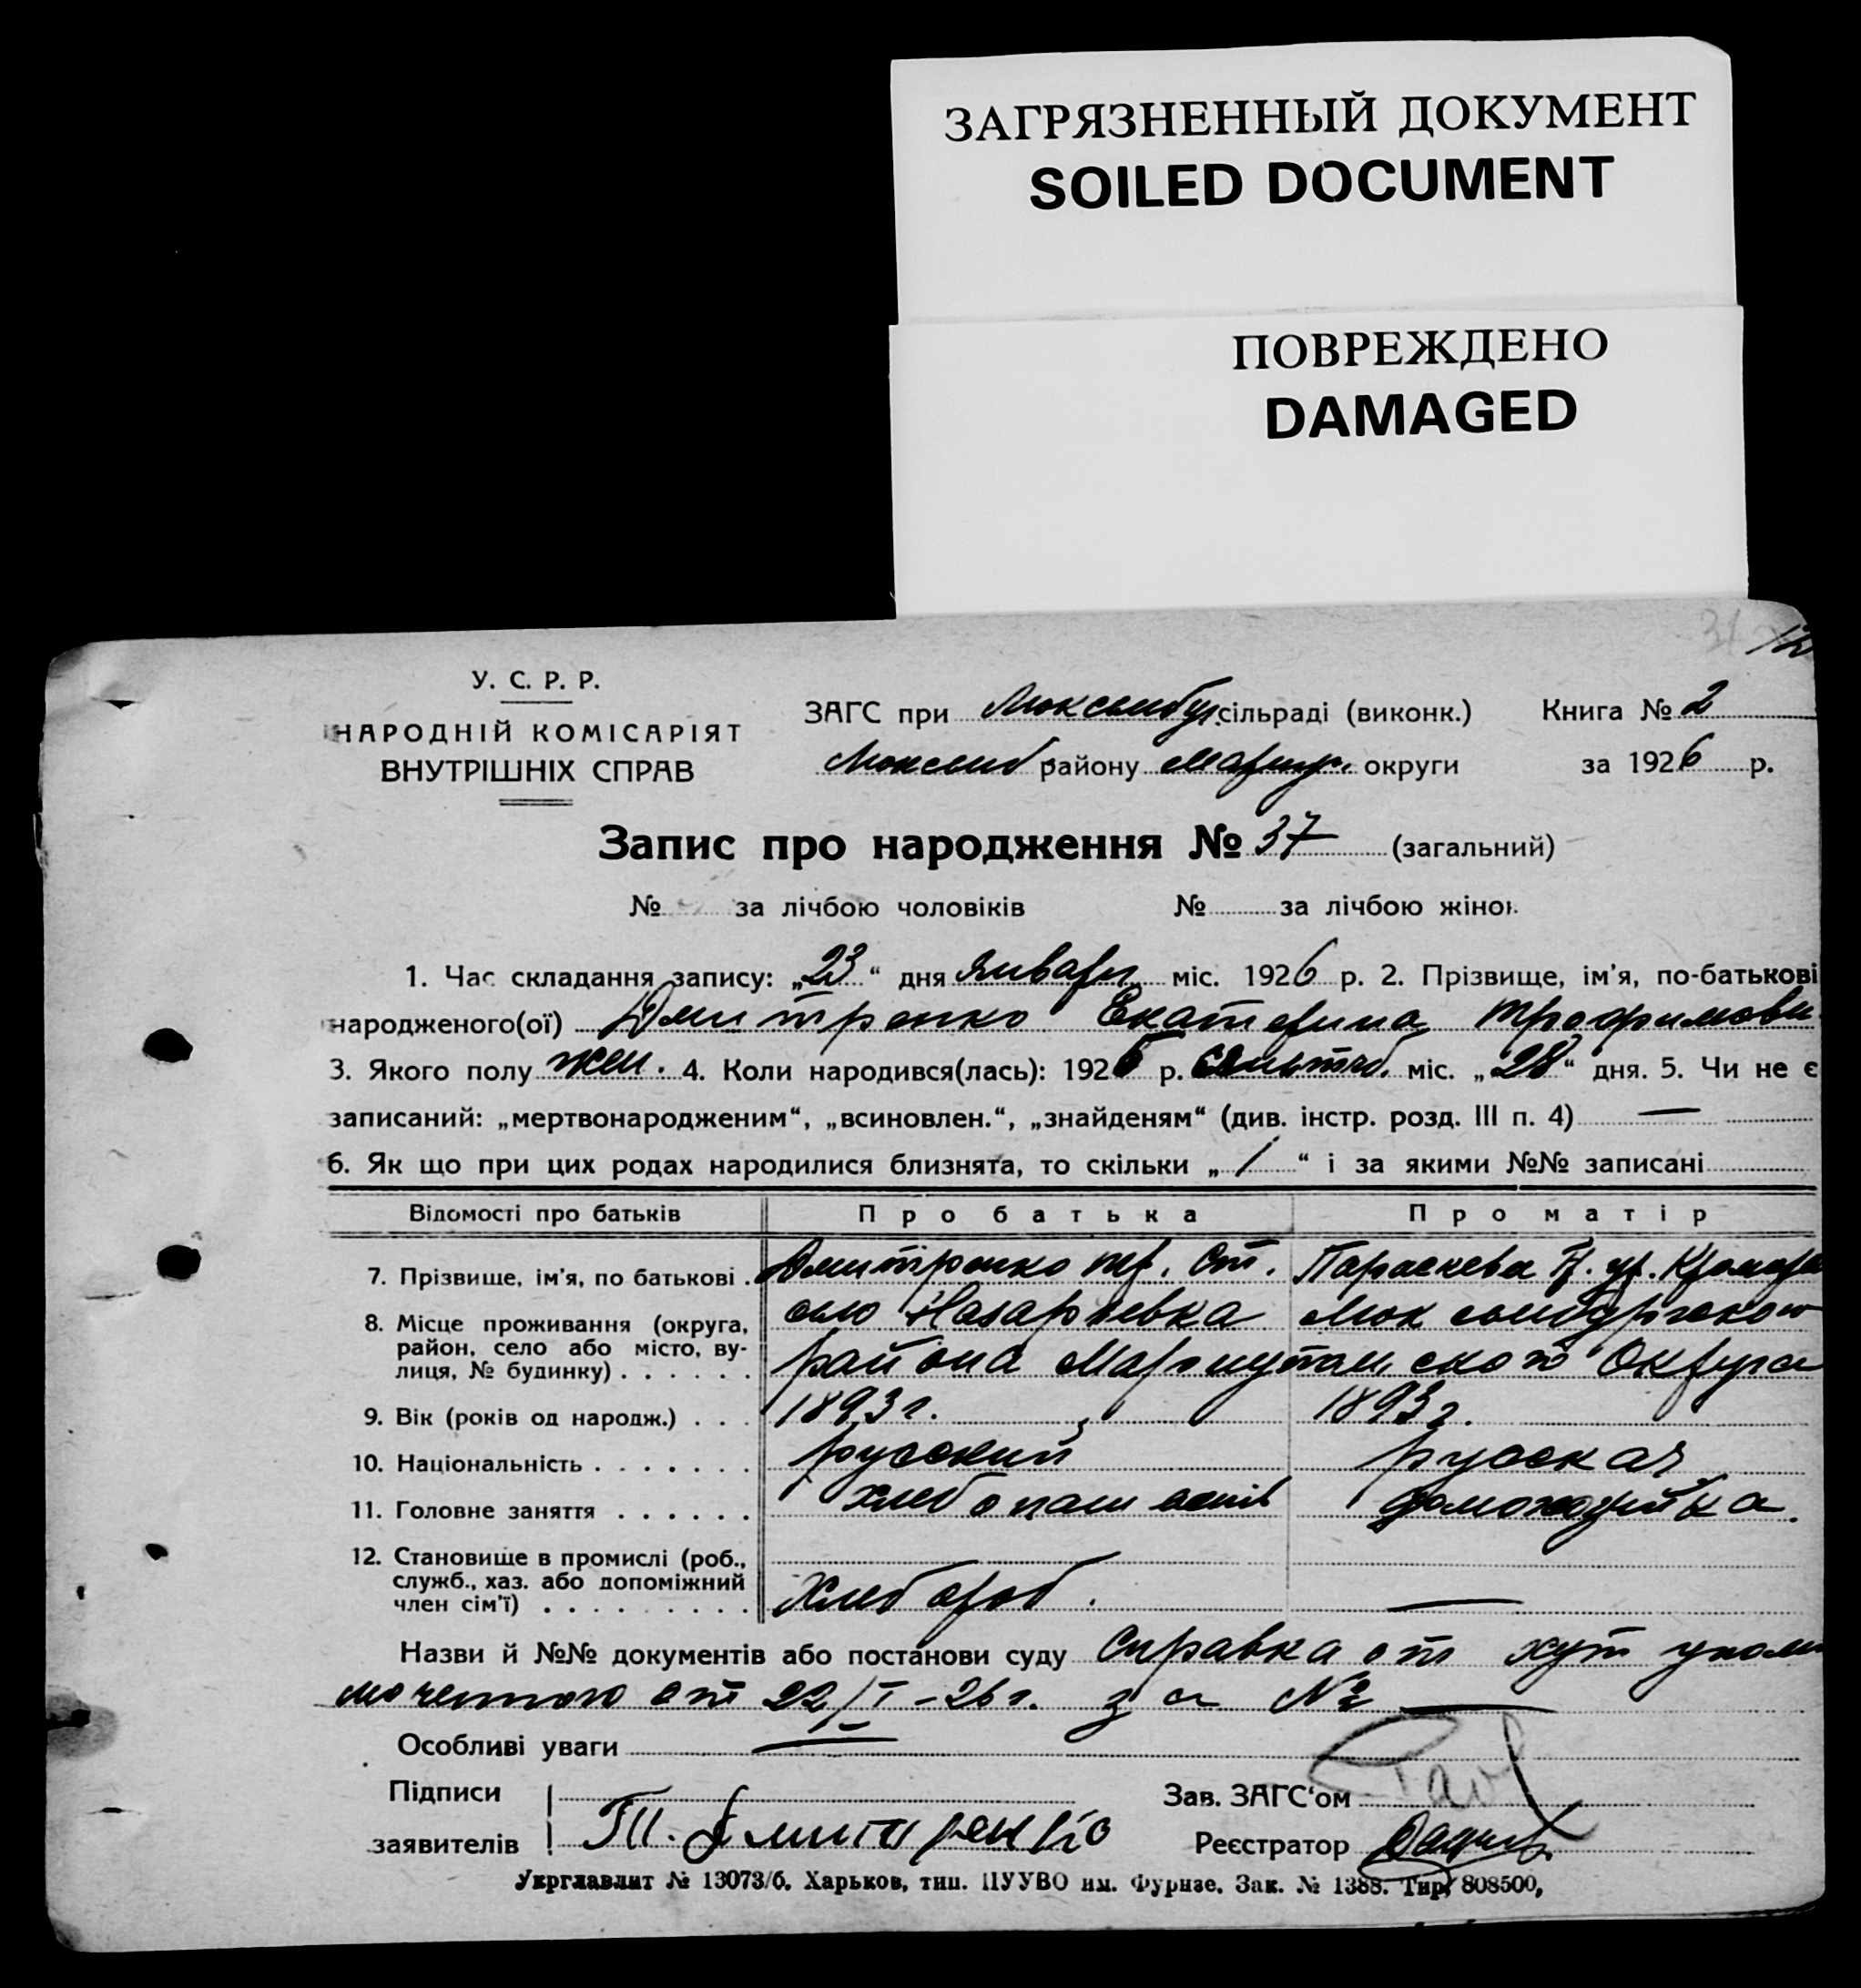 ЗАГРЯЗНЕННЫЙ ДОКУМЕНТ
SOILED DOCUMENT
ПОВРЕЖДЕНО
DAMAGED
У. С. Р. Р.
НАРОДНІЙ КОМІСАРІЯТ
ВНУТРІШНІХ СПРАВ
ЗАГС при Люксембур. сільраді (виконк.) Книга № 2
Люксемб району Мариуп. округи за 1926 р.
Запис про народження № 37 (загальний)
№ за лічбою чоловіків № за лічбою жінок
1. Час складання запису: „23“ дня января міс. 1926 р. 2. Прізвище, ім'я, по-батькові
народженого(ої) Дмитренко Екатерина Трофимовн
3. Якого полу жен. 4. Коли народився(лась): 1925 р. міс. „28“ дня. 5. Чи не є
записаний: „мертвонародженим“, „всиновлен.“, „знайденям“ (див. інстр. розд. III п. 4) —
6. Як що при цих родах народилися близнята, то скільки „1“ і за якими №№ записані
Відомості про батьків Про батька Про матір
7. Прізвище, ім'я, по батькові . Дмитренко Ст. Параскева
8. Місце проживання (округа, село Назарьевка Люксембургского
район, село або місто, ву-
лиця, № будинку) . . . . . . района Мариупольского Округа
9. Вік (років од народж.) . . . 1893 г. 1893 г.
10. Національність . . . . . . . русский русская
11. Головне заняття . . . . . . хлебопашест домохозяйка.
12. Становище в промислі (роб.,
служб., хаз. або допоміжний
член сім'ї) . . . . . . . . . Хлебороб. —
Назви й №№ документів або постанови суду Справка от хут уполн
моченного от 22/I-26 г. за № —
Особливі уваги —
Підписи Зав. ЗАГС'ом
заявителів Т. Дмитренко Реєстратор
Укрглавлит № 13073/б. Харьков, тип. ЦУУВО им. Фрунзе. Зак. № 1388. Тир. 808500,